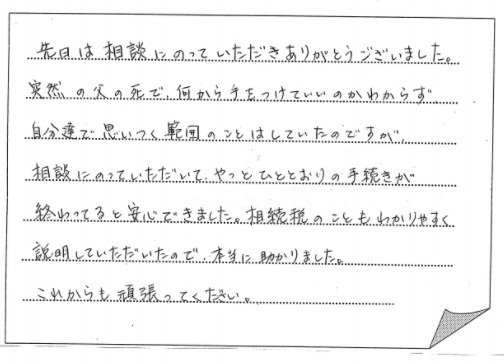 先日は相談にのっていただきありがとうございました。
突然の父の死で、何から手をつけていいのかわからず
自分達で思いつく範囲のことはしていたのですが、
相談にのっていただいて、やっとひととおりの手続きが
終わってると安心できました。相続税のこともわかりやすく
説明していただいたので、本当に助かりました。
これからも頑張ってください。